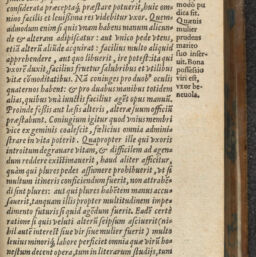 considerata præceptaq; præstare potuerit, huic om
nino facilis et leuissima res videbitur vxor. Quem
admodum enim si quis vnam habens manum alicun
de &amp; alteram adipiscatur: aut vnico pede vtens,
etiā alterū aliūde acquirat: facilius multo aliquid
apprehendere, aut quo libuerit, ire potest: ita qui
vxorē duxit, facilius fruetur salubribus et vtilibus
vitæ cōmoditatibus. Nā coniuges pro duob. oculis
quaternos habent: &amp; pro duabus manibus totidem
alias, quibus vnā iunctis facilius aget opus manuū.
Proinde fessis aut læsis alteris, alteræ suum officiū
præstabunt. Coniugium igitur quod vnius membri
vice ex geminis coalescit, felicius omnia admini
strare in vita poterit. Quapropter ille qui vxoris
introitum degrauare vitam, &amp; difficilem ad agen
dum reddere existimauerit, haud aliter afficitur,
quàm qui plures pedes assumere prohibuerit, vt si
multum itineris conficiendum fuerit, non attrahē
di sint plures: aut qui plures habētem manus accu
sauerit, tanquam illis propter multitudinem impe
dimento futuris si quid agēdum fuerit. Eadē certè
ratione si quis veluti alterū seipsum asciuerit (ni
hil autē interest siue vir siue mulier fuerit) multo
leniusminoriq; labore perficiet omnia quæ virū ho
nestum decent opera, tum in literarum studijs, tum
modò pu
dica sit.
Quænis
mulier
prudens
marito
suo inser
uit. Bona
possessio
viri est,
vxor be-
neuola.